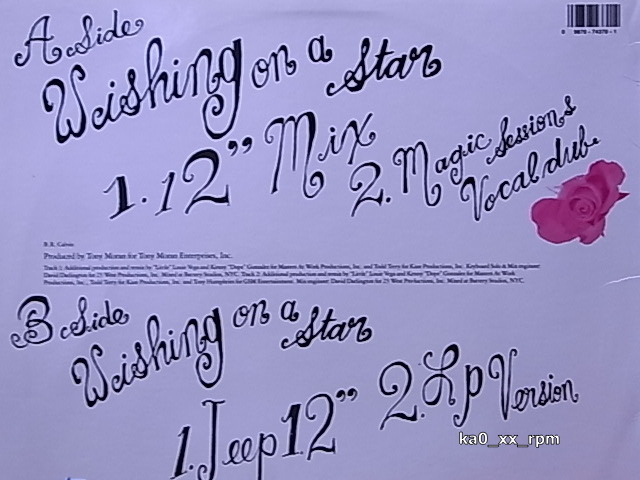 A Side
Wishing on a Star
1. 12" Mix
2. Magic Sessions
Vocal dub.
B.R. Calvin
Produced by Tony Moran for Tony Moran Enterprises, Inc.
Track 1: Additional production and remix by "Little" Louie Vega and Kenny "Dope" Gonzalez for Masters At Work Productions, Inc. and Todd Terry for Kaos Productions, Inc. Keyboard Solo & Mix engineer:
David Darlington for 25 West Productions, Inc. Mixed at Battery Studios, NYC. Track 2: Additional production and remix by "Little" Louie Vega and Kenny "Dope" Gonzalez for Masters At Work
Productions, Inc., Todd Terry for Kaos Productions, Inc. and Tony Humphries for GSM Entertainment. Mix engineer: David Darlington for 25 West Productions, Inc. Mixed at Battery Studios, NYC.
B Side
Wishing on a Star
1. Jeep 12"
2. Lp Version
ka0_xx_rpm